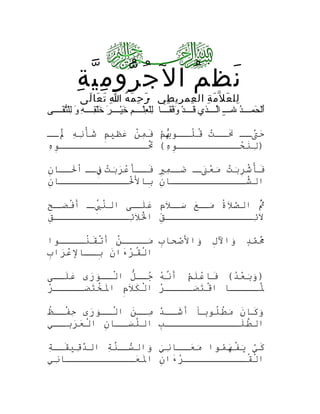 ﷽
نَظْمُ الْآجُرُّومِيَّةِ
لِلْعَلَّامَةِ الْعِمْرِيطِي رَحِمَهُ اللهُ تَعَالَى
اَلْحَمْدُ للهِ الَّذِي قَدْ وَفَّقَا لِلْعِلْمِ خَيْرَ خَلْقِهِ وَلِلتُّقَى
حَتَّى نَحَتْ قُلُوبُهُمْ (لِنَحْوِهِ) فَمِنْ عَظِيمِ شَأْنِهِ لَمْ تَحْوِهِ
فَأُشْرِبَتْ مَعْنَى ضَمِيرِ الشَّانِ فَأُعْرِبَتْ فِي الْحَانِ بِالْأَلْحَانِ
ثُمَّ الصَّلَاةُ مَعَ سَلَامٍ لَائِقِ عَلَى النَّبِيِّ أَفْصَحِ الْخَلَائِقِ
مُحَمَّدٍ وَالْآلِ وَالْأَصْحَابِ مَنْ أَتْقَنُوا الْقُرْءَانَ بِالْإِعْرَابِ
(وَبَعْدُ) فَاعْلَمْ أَنَّهُ لَمَّا اقْتَصَرْ جُلُّ الْوَرَى عَلَى الْكَلَامِ الْمُخْتَصَرْ
وَكَانَ مَطْلُوباً أَشَدَّ الطَّلَبِ مِنَ الْوَرَى حِفْظُ اللِّسَانِ الْعَرَبِي
كَيْ يَفْهَمُوا مَعَانِيَ الْقُرْءَانِ وَالسُّنَّةِ الدَّقِيقَةِ الْمَعَانِي